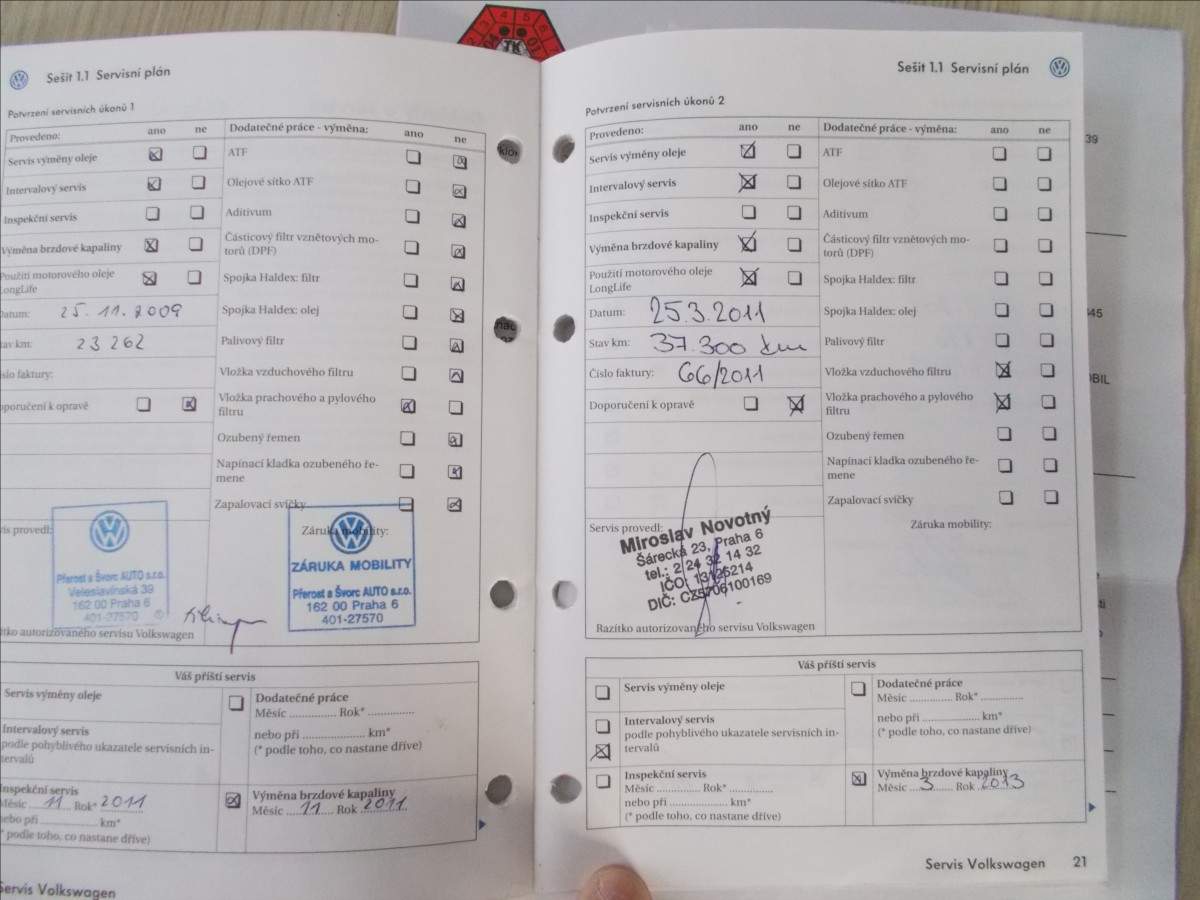 4 5 6
TK
01
Sešit 1.1 Servisní plán
Potvrzení servisních úkonů 1
Provedeno: ano ne
Servis výměny oleje
Intervalový servis
Inspekční servis
Výměna brzdové kapaliny
Použití motorového oleje
LongLife
Datum: 25. 11. 2009
Stav km: 23 262
číslo faktury:
Doporučení k opravě
Dodatečné práce - výměna: ano ne
ATF
Olejové sítko ATF
Aditivum
Částicový filtr vznětových mo-
torů (DPF)
Spojka Haldex: filtr
Spojka Haldex: olej
Palivový filtr
Vložka vzduchového filtru
Vložka prachového a pylového
filtru
Ozubený řemen
Napínací kladka ozubeného ře-
mene
Zapalovací svíčky
Servis provedl:
Přerost a Švorc AUTO s.r.o.
Veleslavínská 39
162 00 Praha 6
401-27570
Razítko autorizovaného servisu Volkswagen
Záruka mobility:
ZÁRUKA MOBILITY
Přerost a Švorc AUTO s.r.o.
162 00 Praha 6
401-27570
Váš příští servis
Servis výměny oleje
Intervalový servis
podle pohyblivého ukazatele servisních in-
tervalů
Inspekční servis
Měsíc 11 Rok* 2011
nebo při .......... km*
(* podle toho, co nastane dříve)
Dodatečné práce
Měsíc .......... Rok* ..........
nebo při .......... km*
(* podle toho, co nastane dříve)
Výměna brzdové kapaliny
Měsíc 11 Rok 2011
Servis Volkswagen
Sešit 1.1 Servisní plán
Potvrzení servisních úkonů 2
Provedeno: ano ne
Servis výměny oleje
Intervalový servis
Inspekční servis
Výměna brzdové kapaliny
Použití motorového oleje
LongLife
Datum: 25.3.2011
Stav km: 37.300 km
Číslo faktury: 66/2011
Doporučení k opravě
Dodatečné práce - výměna: ano ne
ATF
Olejové sítko ATF
Aditivum
Částicový filtr vznětových mo-
torů (DPF)
Spojka Haldex: filtr
Spojka Haldex: olej
Palivový filtr
Vložka vzduchového filtru
Vložka prachového a pylového
filtru
Ozubený řemen
Napínací kladka ozubeného ře-
mene
Zapalovací svíčky
Servis provedl:
Miroslav Novotný
Šárecká 23, Praha 6
tel.: 2 24 32 14 32
IČO: 13125214
DIČ: CZ5706100169
Razítko autorizovaného servisu Volkswagen
Záruka mobility:
Váš příští servis
Servis výměny oleje
Intervalový servis
podle pohyblivého ukazatele servisních in-
tervalů
Inspekční servis
Měsíc .......... Rok* ..........
nebo při .......... km*
(* podle toho, co nastane dříve)
Dodatečné práce
Měsíc .......... Rok* ..........
nebo při .......... km*
(* podle toho, co nastane dříve)
Výměna brzdové kapaliny
Měsíc 3 Rok 2013
Servis Volkswagen 21
39